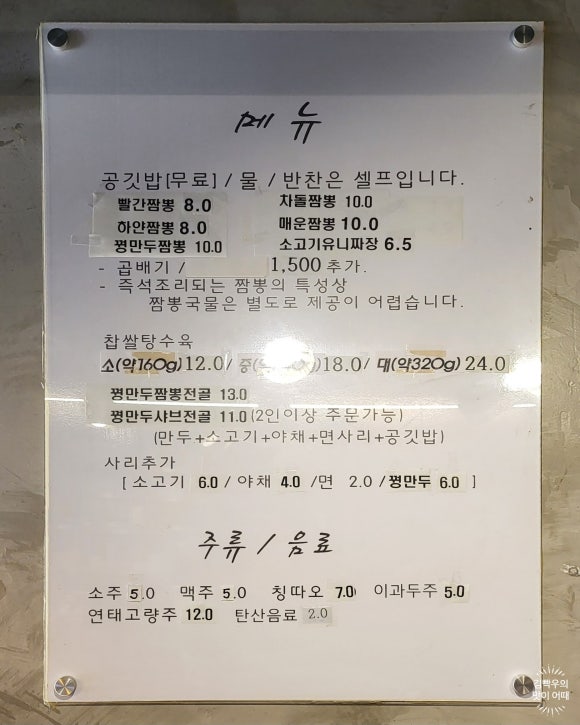 메뉴
공깃밥[무료] / 물 / 반찬은 셀프입니다.
빨간짬뽕 8.0 차돌짬뽕 10.0
하얀짬뽕 8.0 매운짬뽕 10.0
평만두짬뽕 10.0 소고기유니짜장 6.5
- 곱배기 / 1,500 추가.
- 즉석조리되는 짬뽕의 특성상
짬뽕국물은 별도로 제공이 어렵습니다.
찹쌀탕수육
소(약160g) 12.0 / 중 18.0 / 대(약320g) 24.0
평만두짬뽕전골 13.0
평만두샤브전골 11.0 (2인이상 주문가능)
(만두+소고기+야채+면사리+공깃밥)
사리추가
[ 소고기 6.0 / 야채 4.0 / 면 2.0 / 평만두 6.0 ]
주류 / 음료
소주 5.0 맥주 5.0 칭따오 7.0 이과두주 5.0
연태고량주 12.0 탄산음료 2.0
김빡우의
맛이 어때